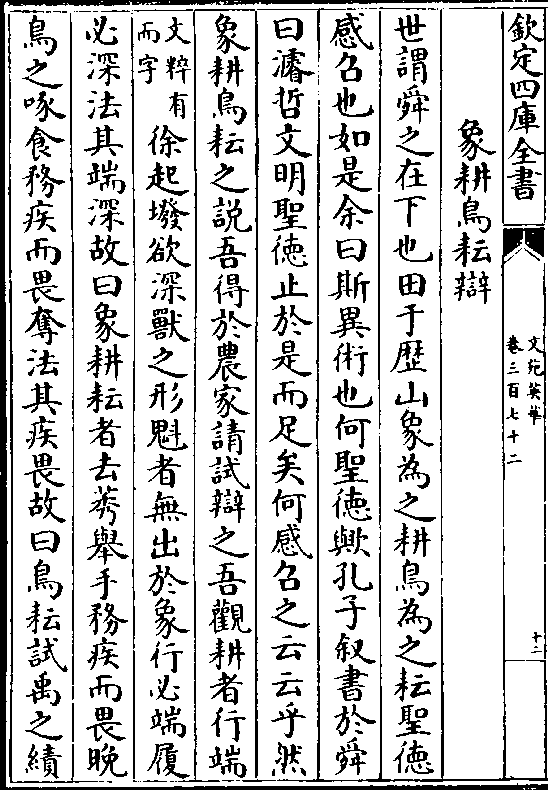 欽定四庫全書
文苑英華
卷三百七十二
十二
象耕鳥耘辯
世謂舜之在下也田于歴山象為之耕鳥為之耘聖徳
感召也如是余曰斯異術也何聖徳歟孔子叙書於舜
曰濬哲文明聖徳止於是而足矣何感召之云云乎然
象耕鳥耘之説吾得於農家請試辯之吾觀耕者行端
文粹有
而字
徐起墢欲深獸之形魁者無出於象行必端履
必深法其端深故曰象耕耘者去莠舉手務疾而畏晚
鳥之啄食務疾而畏奪法其疾畏故曰鳥耘試禹之績